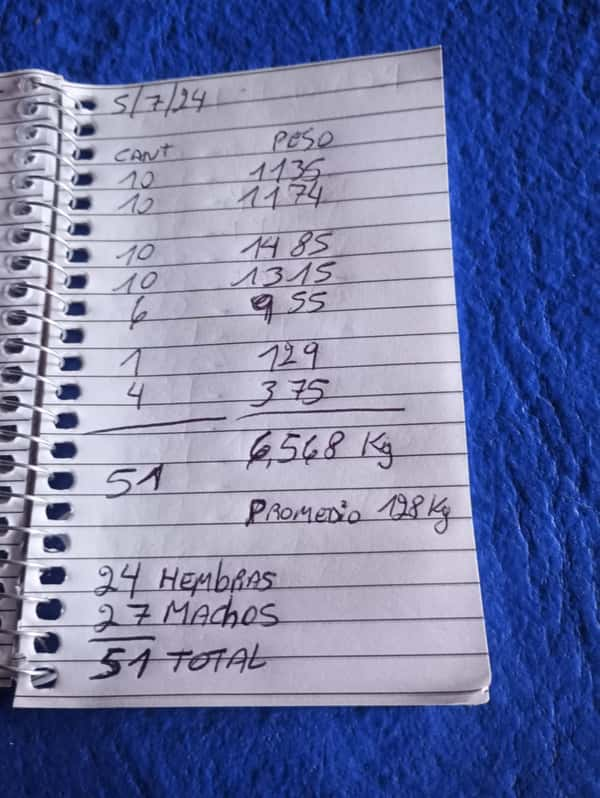 5/7/24
CANT PESO
10 1135
10 1174
10 1485
10 1315
6 955
1 129
4 375
51 6,568 Kg
PROMEDIO 128 Kg
24 HEMBRAS
27 MACHOS
51 TOTAL